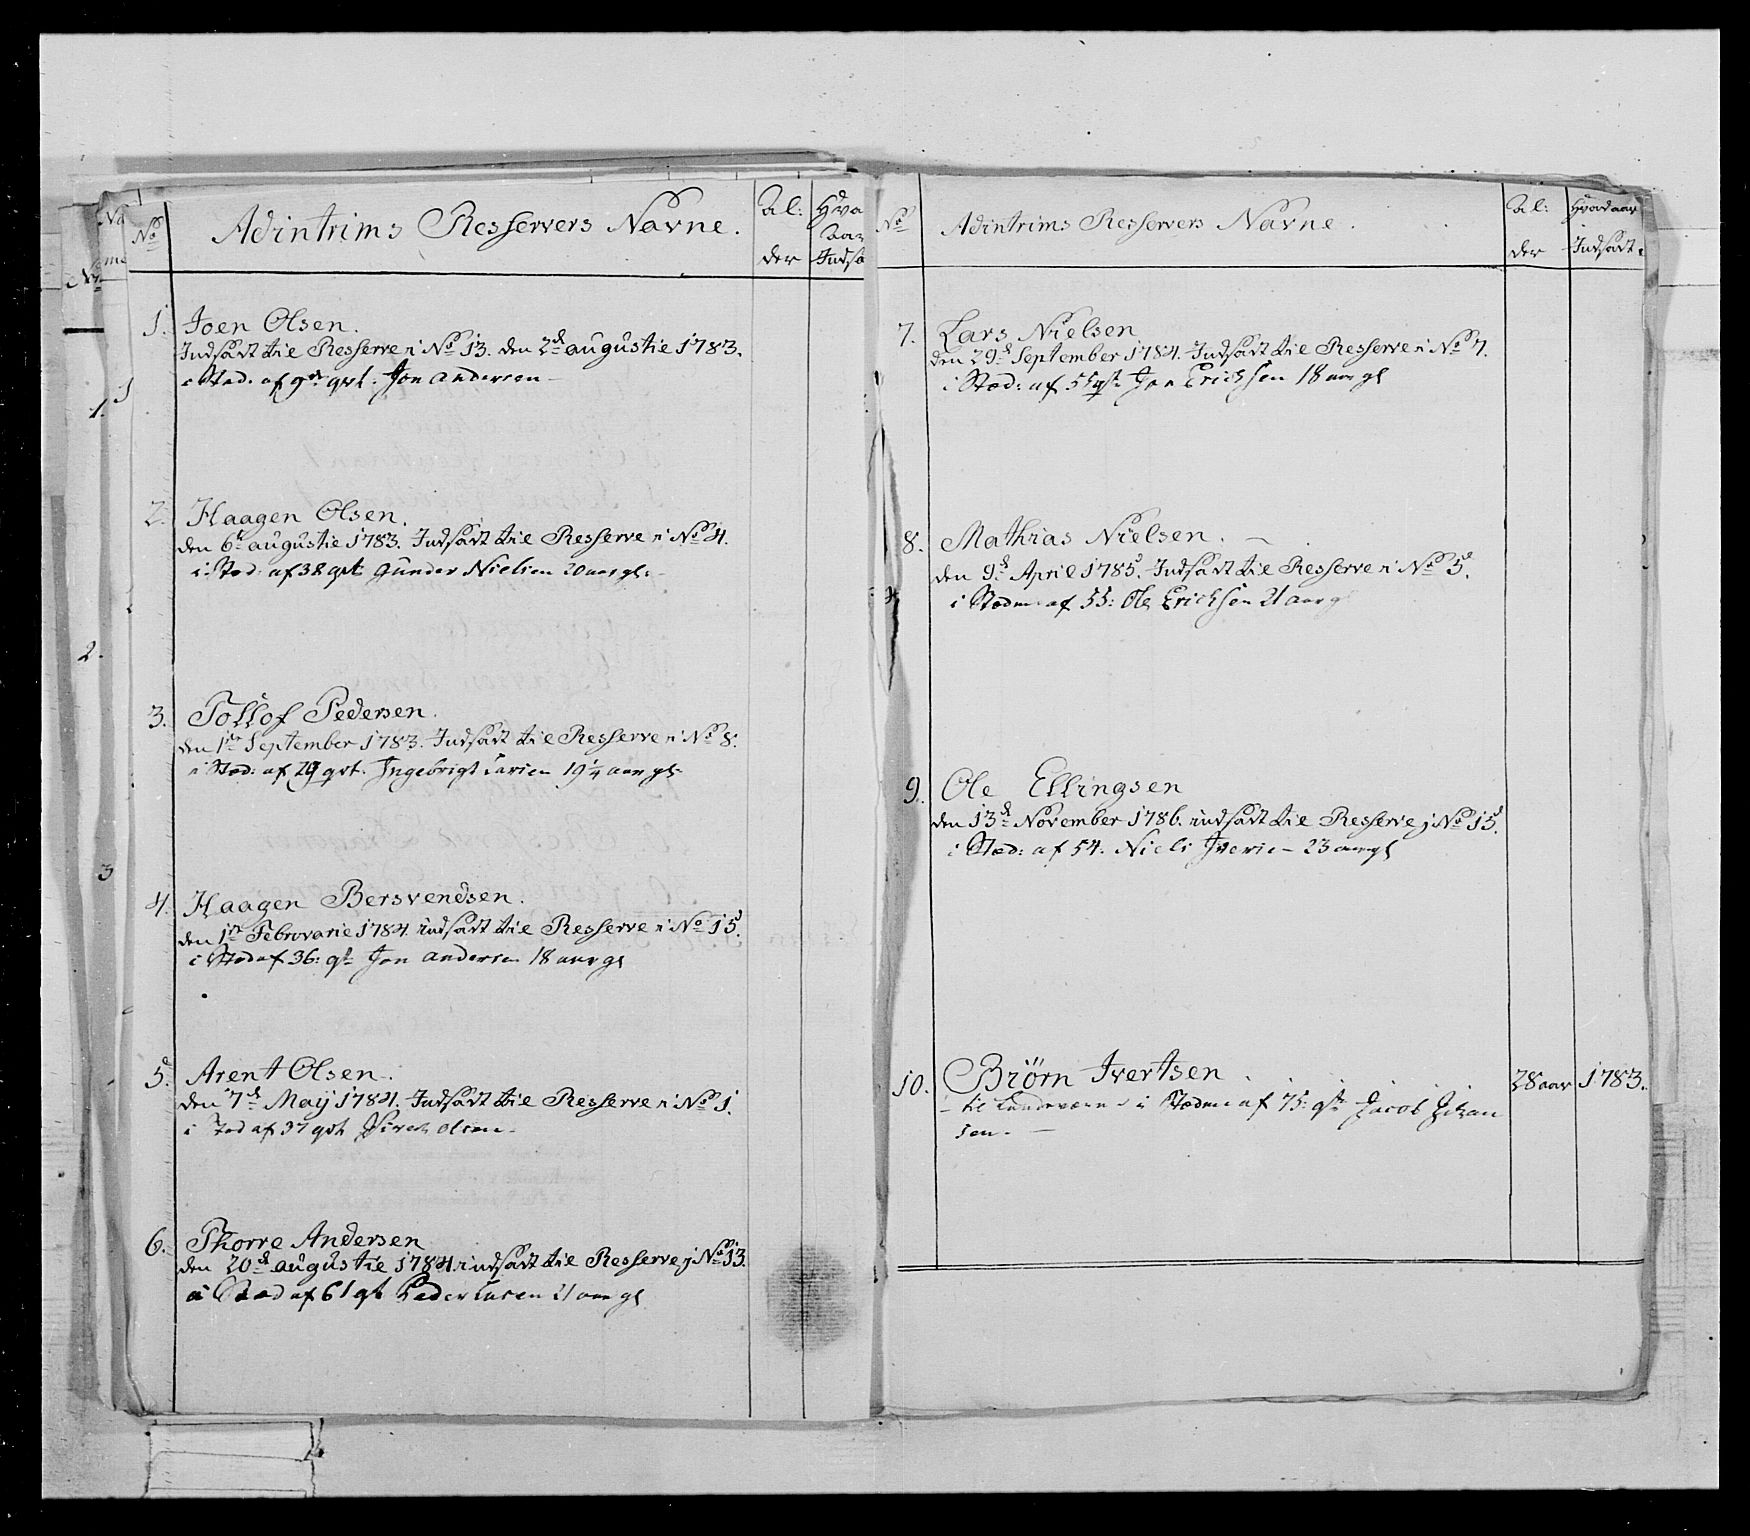 No
Adintrims Resservers Navne.
Al:
der
Hva
Aar
Indsa
1. Joen Olsen.
Indsadt til Resserve i No 13. den 2d augustie 1783.
i Sted. af 9de qvt. Jon andersen
2. Haagen Olsen.
den 6te augustie 1783. Indsadt til Resserve i No 4.
i Sted af 38 qvt Gunder Nielsen 20 aar gl:
3. Tollof Pedersen.
den 1te September 1783. Indsadt til Resserve i No 8.
i Sted: af 29 qvt. Ingebrigt Larsen 19 1/4 aar gl:
4. Haagen Bersvendsen.
den 1te Febrovarie 1784 indsadt til Resserve i No 15.
i Sted af 36: qt Jon andersen 18 aar gl
5. Arent Olsen.
den 7d Maij 1784. Indsadt til Resserve i No 1.
i Sted af 37 qvt olsen.
6. Thorre Andersen
den 20d augustie 1784. indsadt til Resserve j No 13.
i Sted af 61 qt Peder Larsen 21 aar gl
No
Adintrims Resservers Navne.
Al:
der
Hvad aar
Indsadt.
7. Lars Nielsen
den 29d September 1784. Indsadt til Resserve i No 7.
i Sted: af 55 qt Jon Erichsen 18 aar gl
8. Mathias Nielsen.
den 9d April 1785. Indsadt til Resserve i No 5.
i Steden af 55: Ole Erichsen 21 aar g
9. Ole Ellingsen
den 13d November 1786. indsadt til Resserve j No 15.
i Sted: af 54. Niels Iverse 23 aar gl
10. Brörn Ivertsen. 28 aar 1783.
til Landeværn i Steden af 75: qt Jacob Johan
sen.